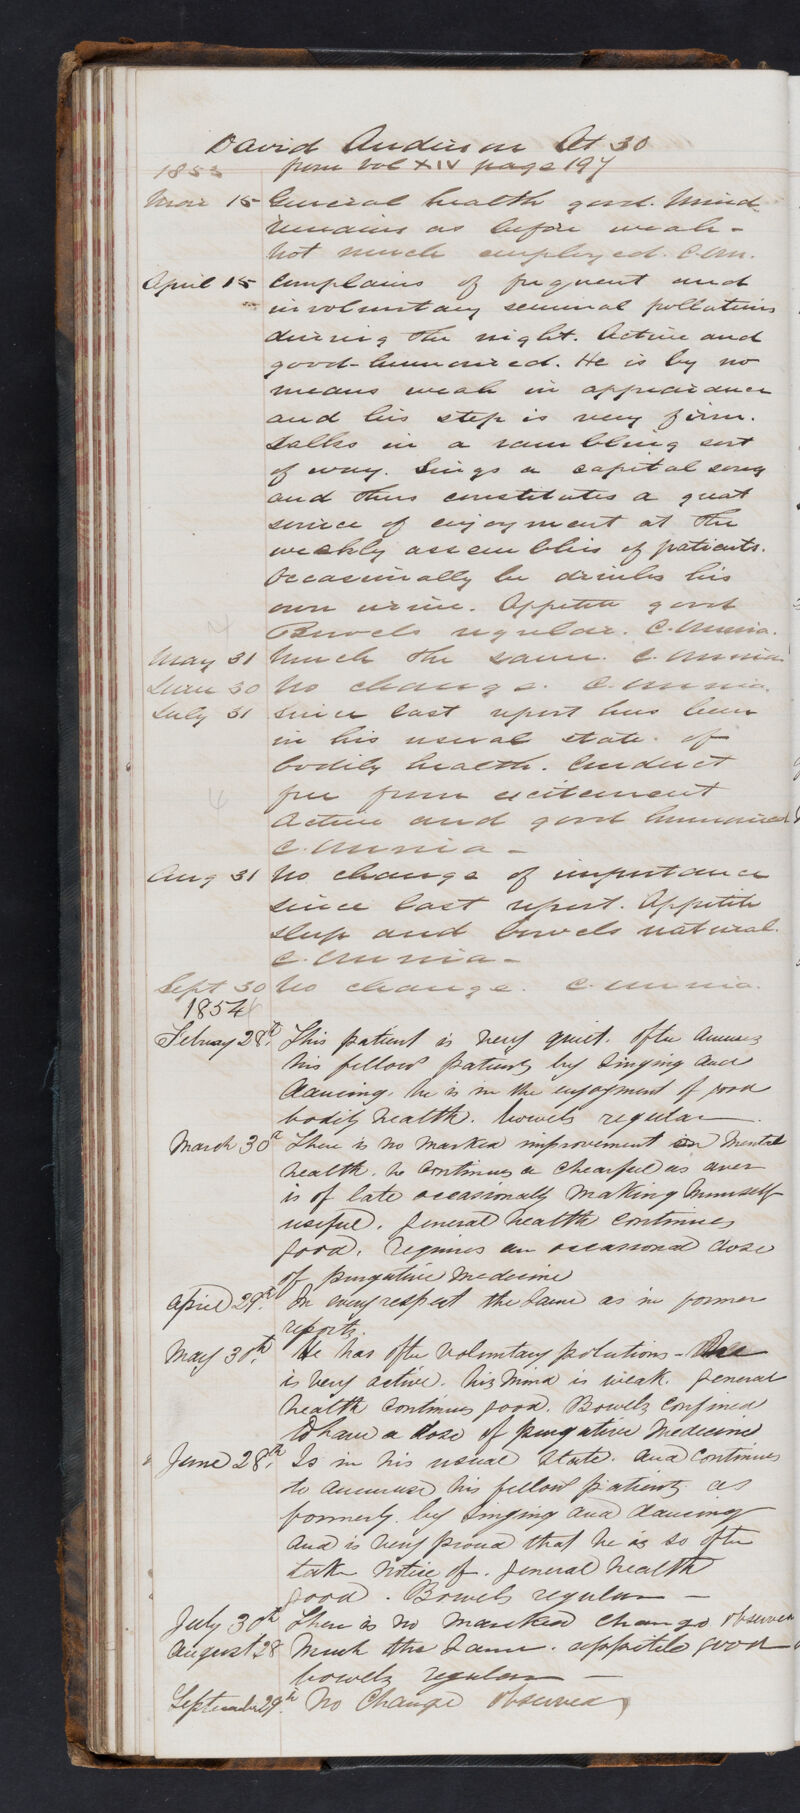 David Anderson Æt 30
1853 from Vol XIV page 197
Mar 15 General health good. Mind
remains as before weak -
not much employed.
April 15 Complains of frequent and
involuntary seminal pollutions
during the night. Active and
good-humoured. He is by no
means weak in appearance
and his step is very firm.
Talks in a rambling sort
of way. Sings a capital song
and thus constitutes a great
source of enjoyment at the
weekly assemblies of patients.
Occasionally he drinks his
own urine. Appetite good
Bowels regular.
May 31 Much the same.
June 30 No change.
July 31 Since last report has been
in his usual state of
bodily health. Conduct
free from excitement
Active and good humoured
Aug 31 No change of importance
since last report. Appetite
sleep and bowels natural.
Sept 30 No change.
1854
Februay 28th. This patient is very quiet. often amuses
his fellow patients by singing and
dancing. he is in the enjoyment of good
bodily health. bowels regular
March 30th There is no marked improvement in mental
health. he continues as chearful as aver
is of late occasionally making himself
useful. general health continues
good. requires an occasional dose
of purgative medicine
April 29th. In every respect the same as in former
reports.
May 30th. He has ofte voluntary polutions - 
is very active. his mind is weak. general
health continues good. Bowels confined
to have a dose of purgative medicine
June 28th. Is in his usual state. and continues
to ammuse his fellow patients as
formerly. by singing and dancing
and is very proud that he is so ofte
take notice of. general health
good. Bowels regular -
July 30th There is no marked change observed
August 28 Much the same. appetite good
bowels regular -
September 29th. No Change observed